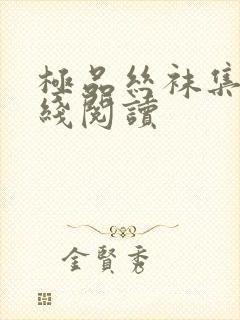 極品絲袜集
綫閱讀
金賢秀